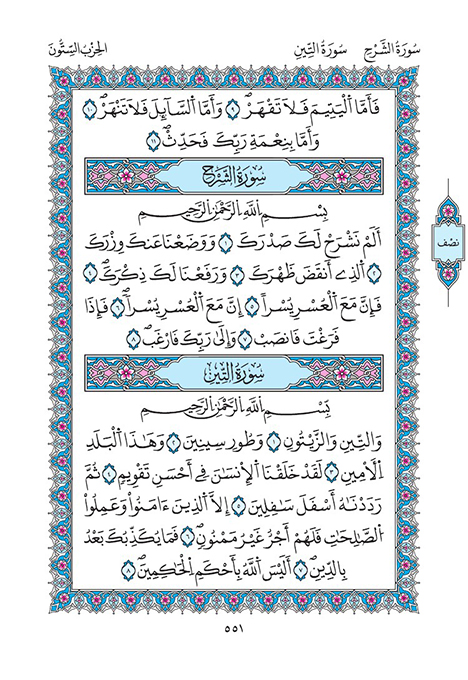 سُورَةُ الشَّرْحِ سُورَةُ التِّينِ الحِزْبُ السِّتُّونَ
فَأَمَّا الْيَتِيمَ فَلَا تَقْهَرْ ۝٩ وَأَمَّا السَّآئِلَ فَلَا تَنْهَرْ ۝١٠
وَأَمَّا بِنِعْمَةِ رَبِّكَ فَحَدِّثْ ۝١١
سُورَةُ الشَّرْحِ
بِسْمِ اللَّهِ الرَّحْمَٰنِ الرَّحِيمِ
أَلَمْ نَشْرَحْ لَكَ صَدْرَكَ ۝١ وَوَضَعْنَا عَنكَ وِزْرَكَ
۝٢ الَّذِي أَنقَضَ ظَهْرَكَ ۝٣ وَرَفَعْنَا لَكَ ذِكْرَكَ ۝٤
فَإِنَّ مَعَ الْعُسْرِ يُسْراً ۝٥ إِنَّ مَعَ الْعُسْرِ يُسْراً ۝٦ فَإِذَا
فَرَغْتَ فَانصَبْ ۝٧ وَإِلَىٰ رَبِّكَ فَارْغَب ۝٨
نصف
سُورَةُ التِّينِ
بِسْمِ اللَّهِ الرَّحْمَٰنِ الرَّحِيمِ
وَالتِّينِ وَالزَّيْتُونِ ۝١ وَطُورِ سِينِينَ ۝٢ وَهَٰذَا الْبَلَدِ
الْأَمِينِ ۝٣ لَقَدْ خَلَقْنَا الْإِنسَٰنَ فِي أَحْسَنِ تَقْوِيمٍ ۝٤ ثُمَّ
رَدَدْنَٰهُ أَسْفَلَ سَٰفِلِينَ ۝٥ إِلَّا الَّذِينَ ءَامَنُواْ وَعَمِلُواْ
الصَّٰلِحَٰتِ فَلَهُمْ أَجْرٌ غَيْرُ مَمْنُونٍ ۝٦ فَمَا يُكَذِّبُكَ بَعْدُ
بِالدِّينِ ۝٧ أَلَيْسَ اللَّهُ بِأَحْكَمِ الْحَٰكِمِينَ ۝٨
٥٥١